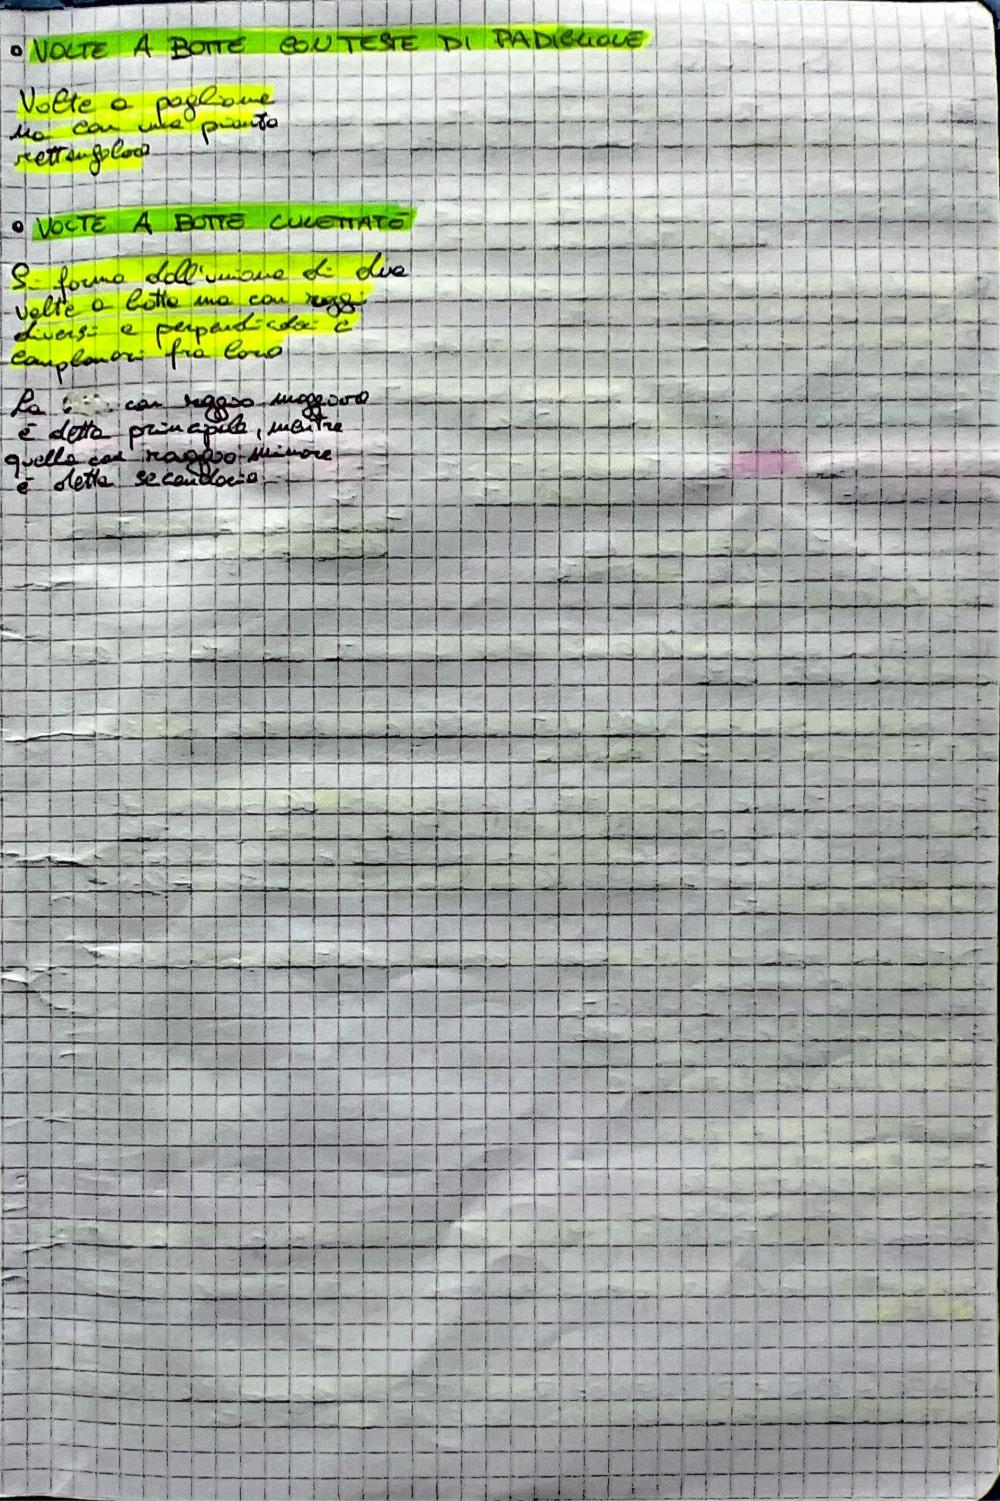 • VOLTE A BOTTE CON TESTE DI PADIGLIONE
Volte a paglione
ma con una pianta
rettangolare
• VOLTE A BOTTE LUNETTATE
Si forma dall'unione di due
volte a botte ma con raggi
diversi e perpendicolari e
complanari fra loro
La con raggio maggiore
è detta principale, mentre
quella con raggio minore
è detta secondaria.